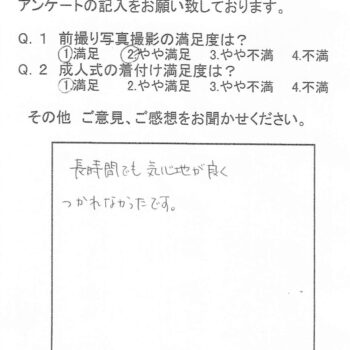 アンケートの記入をお願い致しております。
Q.1 前撮り写真撮影の満足度は?
①満足 ②やや満足 3.やや不満 4.不満
Q.2 成人式の着付け満足度は?
①満足 2.やや満足 3.やや不満 4.不満
その他 ご意見、ご感想をお聞かせください。
長時間でも気心地が良く
つかれなかったです。